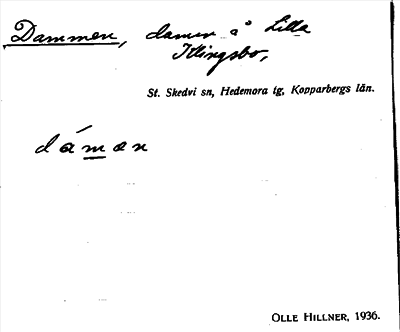 Dammen, damm å Lilla
Klingsbo,
St. Skedvi sn, Hedemora tg, Kopparbergs län.
dáman
OLLE HILLNER, 1936.